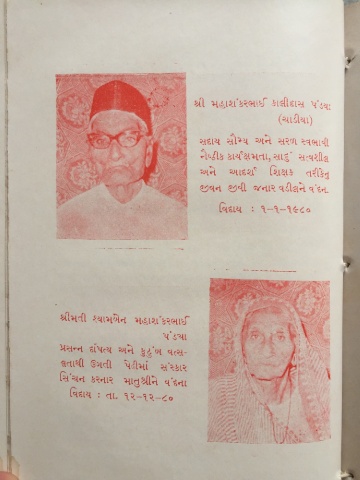 શ્રી મહાશંકરભાઈ કાલીદાસ પંડયા
(ચાડીયા)
સદાય સૌમ્ય અને સરળ સ્વભાવી
નૈષ્ઠીક કાર્યક્ષમતા, સાદુ સત્વશીલ
અને આદર્શ શિક્ષક તરીકેનુ
જીવન જીવી જનાર વડીલને વંદન.
વિદાય : ૧-૧-૧૯૮૦
શ્રીમતી શ્યામબેન મહાશંકરભાઈ
પંડયા
પ્રસન્ન દાંપત્ય અને કુટુંબ વત્સ-
લતાથી ઉગતી પેઢીમાં સંસ્કાર
સિંચન કરનાર માતુશ્રીને વંદના
વિદાય : તા. ૧૨-૧૨-૮૦